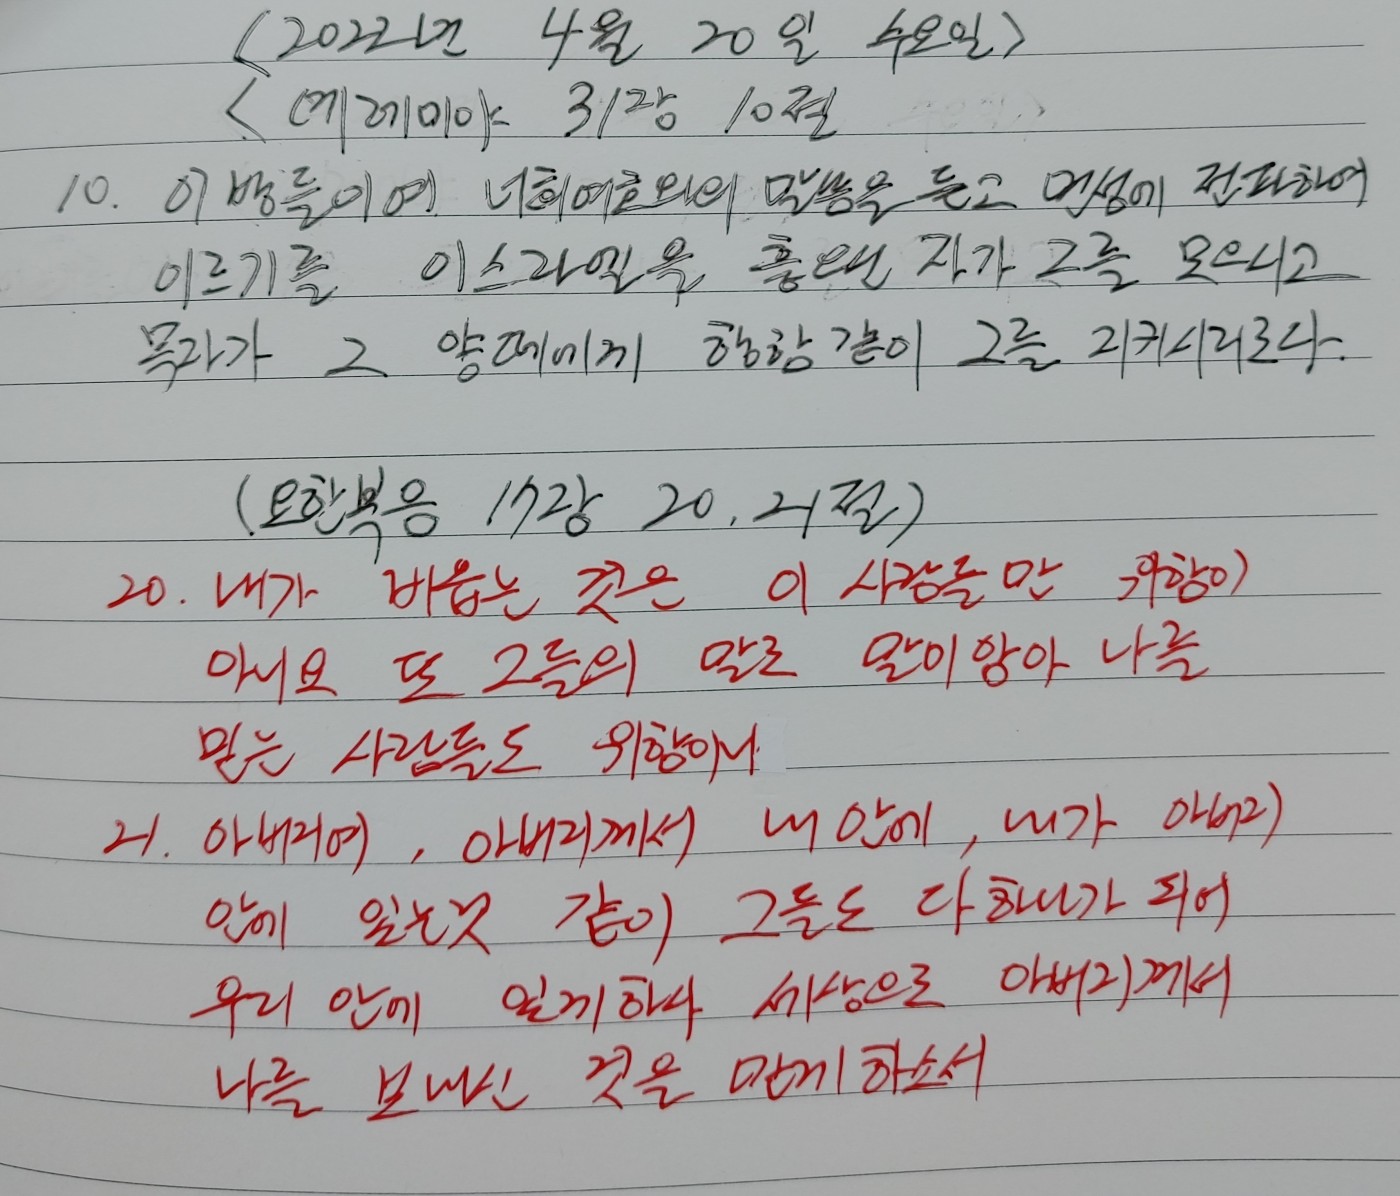 <2022년 4월 20일 수요일>
<예레미야 31장 10절
10. 이방들이여 너희 여호와의 말씀을 듣고 먼섬에 전파하여
이르기를 이스라엘을 흩으신 자가 그를 모으시고
목자가 그 양떼에게 행함 같이 그를 지키시리로다.
(요한복음 17장 20, 21절)
20. 내가 비옵는 것은 이 사람들만 위함이
아니요 또 그들의 말로 말미암아 나를
믿는 사람들도 위함이니
21. 아버지여, 아버지께서 내 안에, 내가 아버지
안에 있는것 같이 그들도 다 하나가 되어
우리 안에 있게하사 세상으로 아버지께서
나를 보내신 것을 믿게하소서